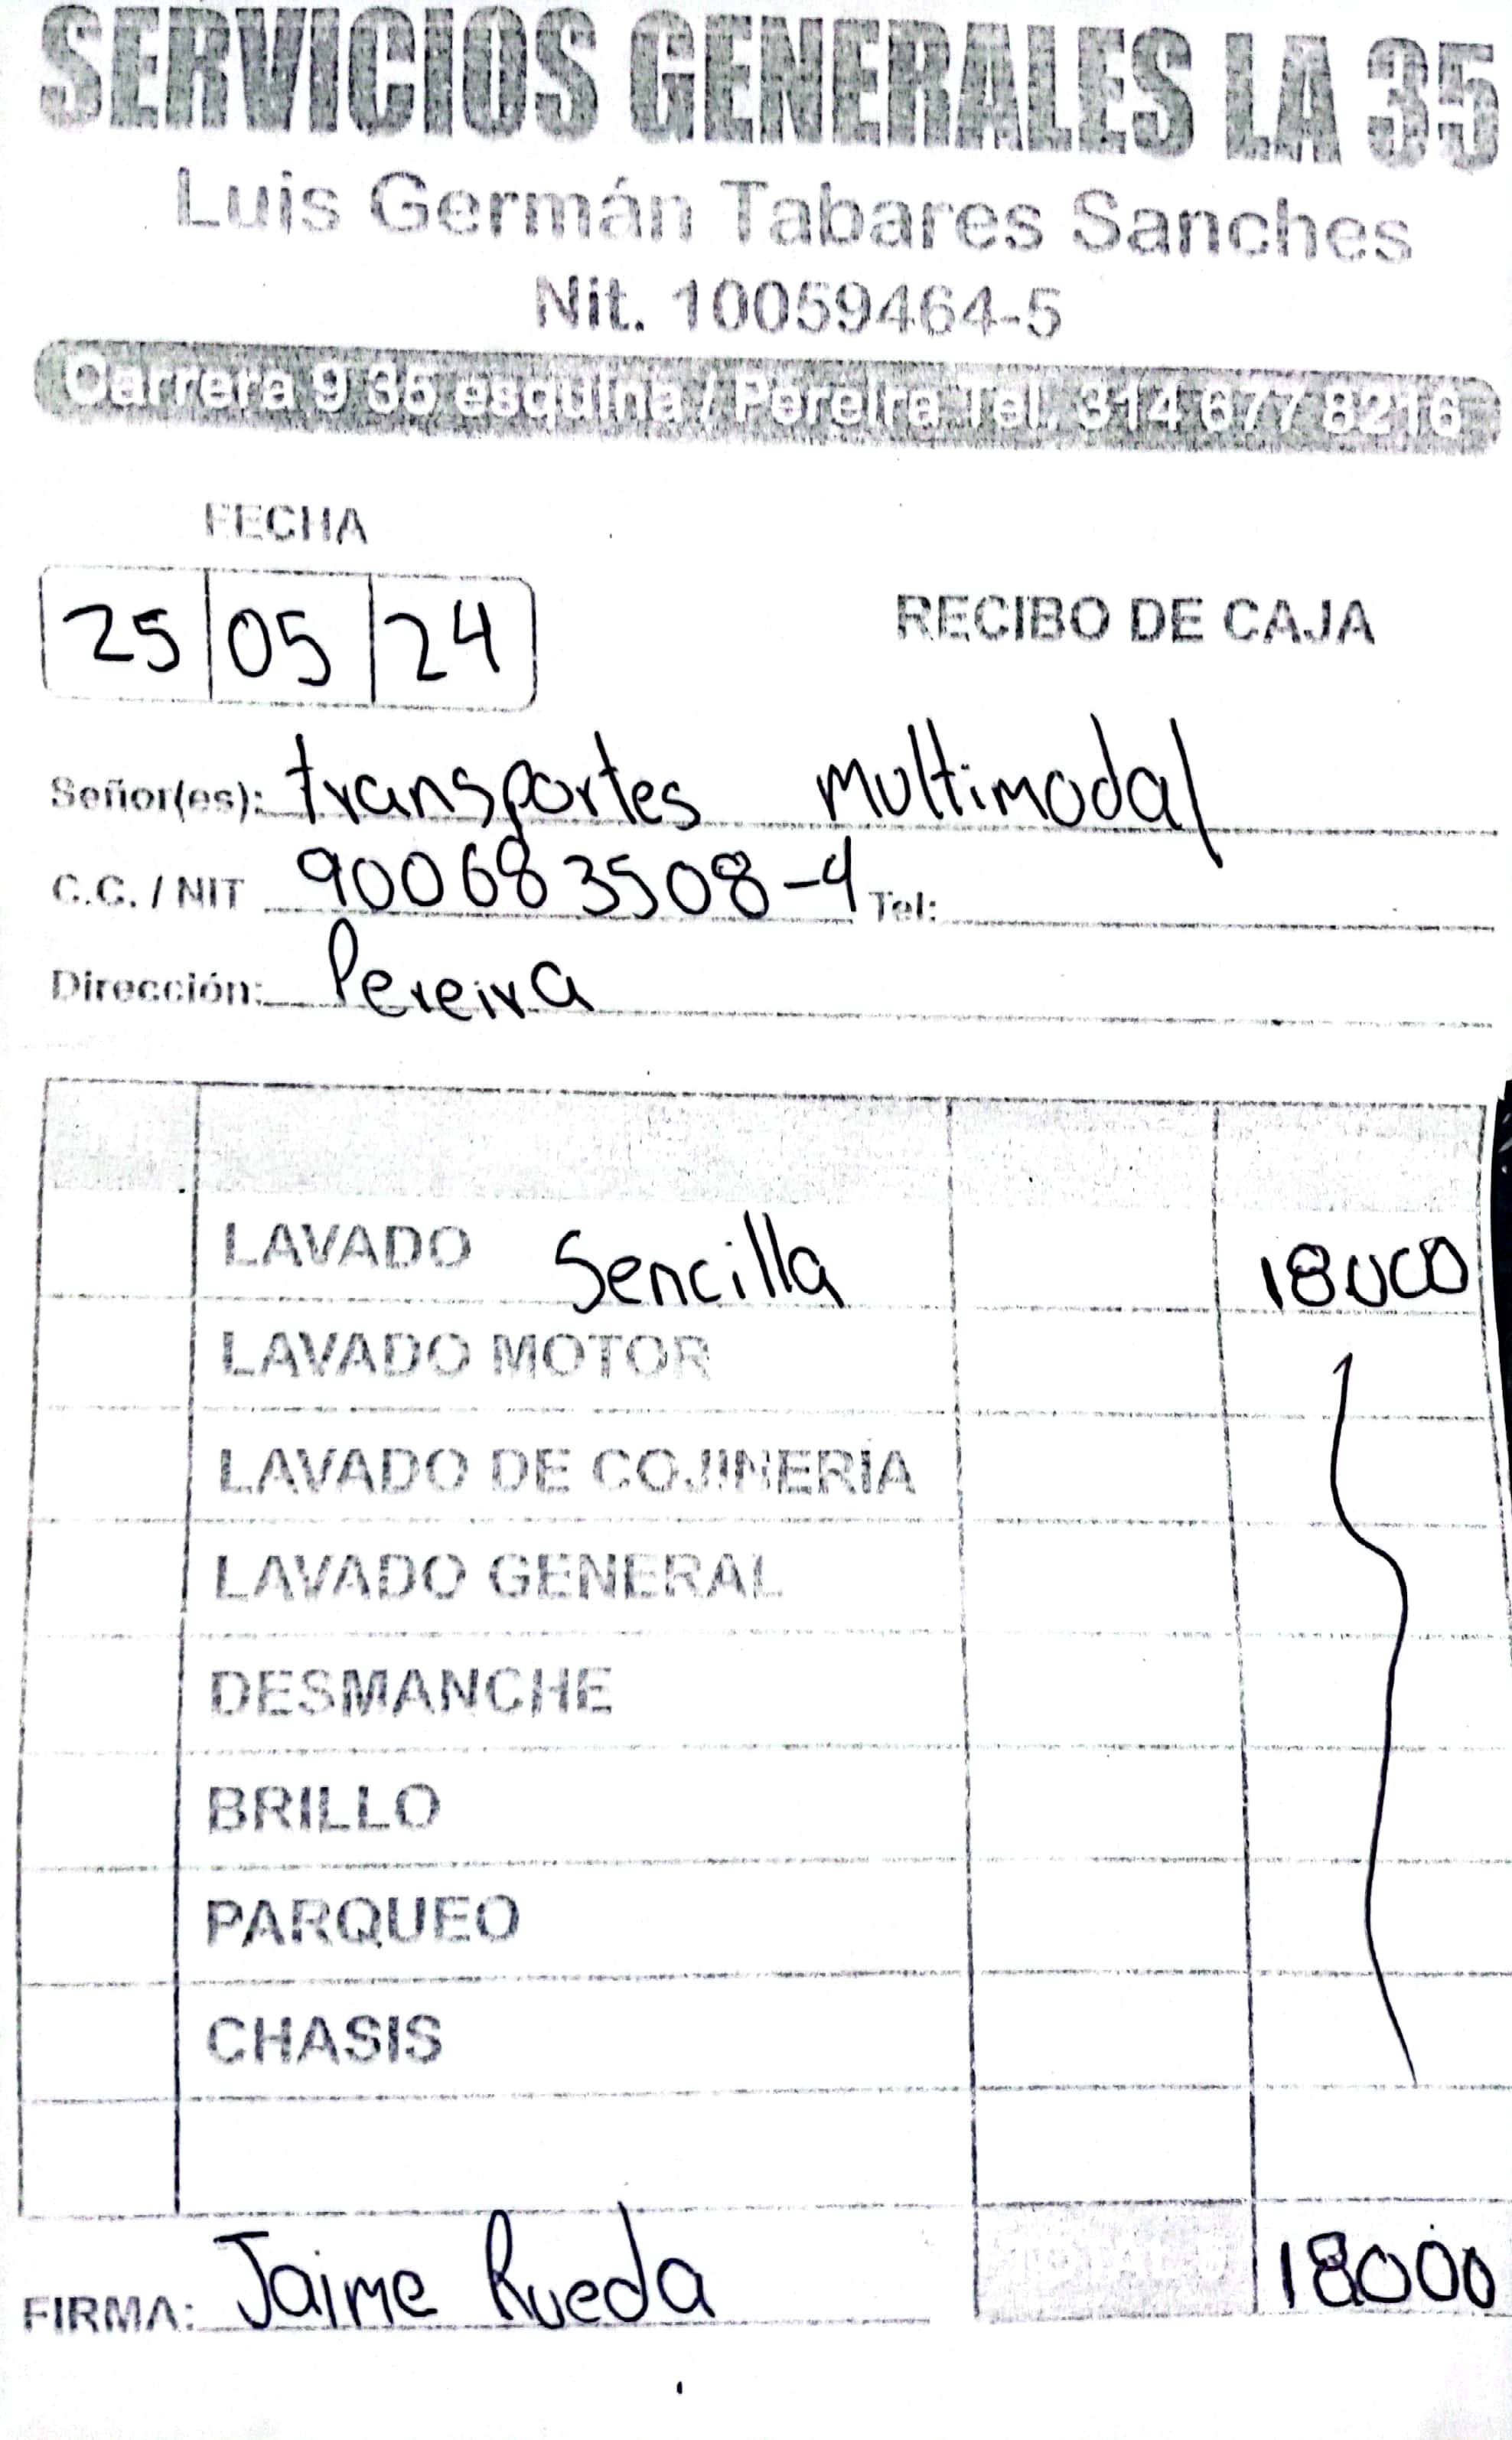 SERVICIOS GENERALES LA 35
Luis Germán Tabares Sanches
Nit. 10059464-5
Carrera 9 35 esquina / Pereira Tel. 314 677 8216
FECHA
25 05 24
RECIBO DE CAJA
Señor(es): transportes multimodal
C.C. / NIT 900683508-4 Tel:
Dirección: Pereira
LAVADO Sencilla 18000
LAVADO MOTOR
LAVADO DE COJINERÍA
LAVADO GENERAL
DESMANCHE
BRILLO
PARQUEO
CHASIS
FIRMA: Jaime Rueda 18000